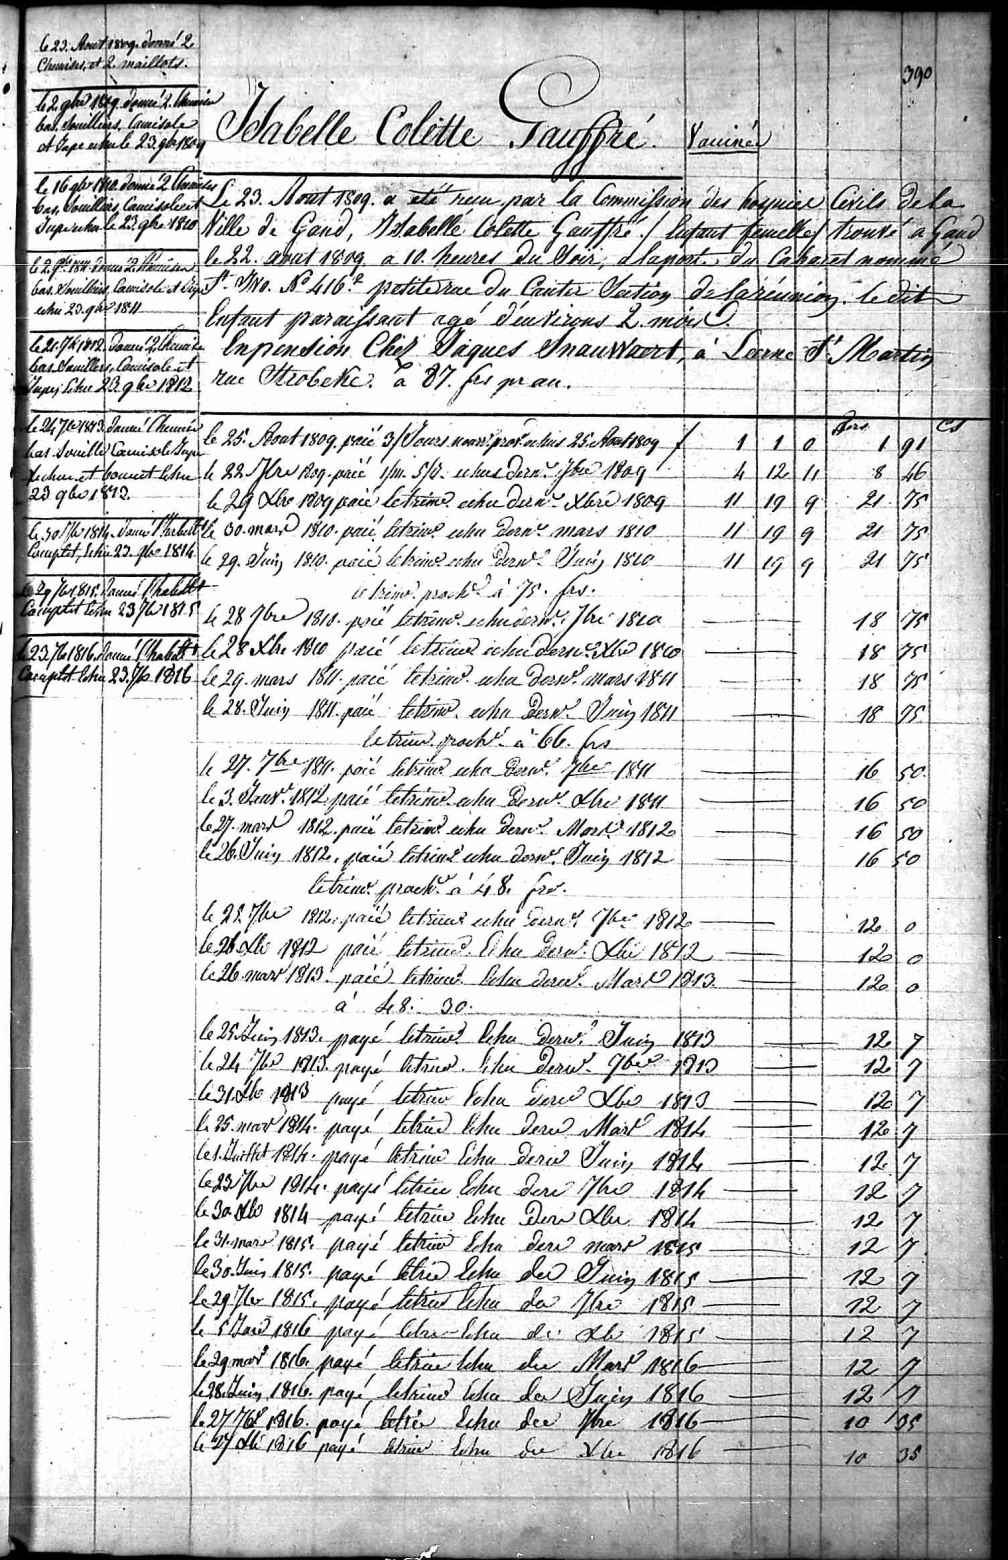 390
le 23. Aout 1809. donné 2
Chemises, et 2. maillots.
le 2. 9bre 1809. donné 2. Chemise
bas, Souilliers, Camisole
et Jupe echu le 23. 9bre 1809
le 16 9bre 1810. donné 2 Chemises
bas, Souilliers, Camisole et
Jupe echu le 23. 9bre 1810
donné 2. Chemises
bas. Souilliers, Camisole et Jupe
echu 23. 9bre 1811
le 21. 7bre 1812. donné 2 Chemise
bas. Souilliers, Camisole et
Jupe, Echu 23. 9bre 1812
le 24 7bre 1813. donné Chemise
bas. Souillé Camisole Jupe
et bonnet Echu
23 9bre 1813.
le 30 7bre 1814. donné
Complet, Echu 23. 9bre 1814
le 29 7bre 1815. Donné
Complet Echu 23 7bre 1815
le 23 7bre 1816. Donné
Complet Echu 23. 7bre 1816
Isabelle Colette Gauffré. Vaccinée
Le 23. Aout 1809. a été recu par la Commission des hospices Civils de la
Ville de Gand, Isabelle Colette Gauffré / Enfant femelle / trouvé a Gand
le 22. aout 1809 a 10. heures du Soir, a la porte du Cabaret nommé
St. Ivo. No 416 petite rue du Section de la réunion. le dit
Enfant paraissant agé d'environs 2. mois.
En pension Chez Jaques Snauwaert, à Laerne St. Martin
rue Strobeke. à 87. frs pr an.
frs Cs
le 25. Aout 1809. paié 3/ Jours echus 25 Aout 1809 f 1 1 0 1 91
le 22 7bre 1809. paié 1/m. 5/J. echus dernr. 7bre 1809 4 12 11 8 46
le 29 Xbre 1809 paié le trimr. echu dernr. Xbre 1809 11 19 9 21 75
le 30. mars 1810. paié le trimr. echu dernr. mars 1810 11 19 9 21 75
le 29. Juin 1810. paié le trimr. echu dernr. Juin 1810 11 19 9 21 75
le trimr. prochr. à 75. frs.
le 28 7bre 1810. paié le trimr. echu dernr. 7bre 1810 18 75
le 28 Xbre 1810 paié le trimr. echu dernr. Xbre 1810 18 75
le 29. mars 1811. paié le trimr. echu dernr. mars 1811 18 75
le 28. Juin 1811. paié le trimr. echu dernr. Juin 1811 18 75
le trimr. prochr. à 66. frs
le 27. 7bre 1811. paié le trimr. echu dernr. 7bre 1811 16 50
le 3. Janvr. 1812. paié le trimr. echu dernr. Xbre 1811 16 50
le 27. mars 1812. paié le trimr. echu dernr. Mars 1812 16 50
le 26. Juin 1812. paié le trimr. echu dernr. Juin 1812 16 50
le trimr. prochr. à 48. frs.
le 22. 7bre 1812. paié le trimr. echu dernr. 7bre 1812 12 0
le 26 Xbre 1812 paié le trimr. Echu dernr. Xbre 1812 12 0
le 26. mars 1813. paié le trimr. Echu dernr. Mars 1813. 12 0
à 48. 30.
le 25 Juin 1813. payé le trimr. Echu dernr. Juin 1813 12 7
le 24 7bre 1813. payé le trimr. Echu dernr. 9bre 1813 12 7
le 31 Xbre 1813 payé le trim Echu dern Xbre 1813 12 7
le 25. mars 1814. payé le trim Echu dern Mars 1814 12 7
le 1. Juillet 1814. payé le trim Echu dern Juin 1814 12 7
le 23 7bre 1814. payé le trim Echu dern 7bre 1814 12 7
le 30 Xbre 1814 payé le trim Echu dern Xbre 1814 12 7
le 31. mars 1815. payé le trim Echu dern mars 1815 12 7
le 30. Juin 1815. payé le trim Echu der Juin 1815 12 7
le 29 7bre 1815. payé le trim Echu der 7bre 1815 12 7
le 5 Janv 1816 payé le trim Echu der Xbre 1815 12 7
le 29 mars 1816. payé le trim Echu der Mars 1816 12 7
le 28. Juin 1816. payé le trim Echu der Juin 1816 12 7
le 27 7bre 1816. payé le trim Echu der 7bre 1816 10 35
le 27 Xbre 1816 payé le trim Echu der Xbre 1816 10 35